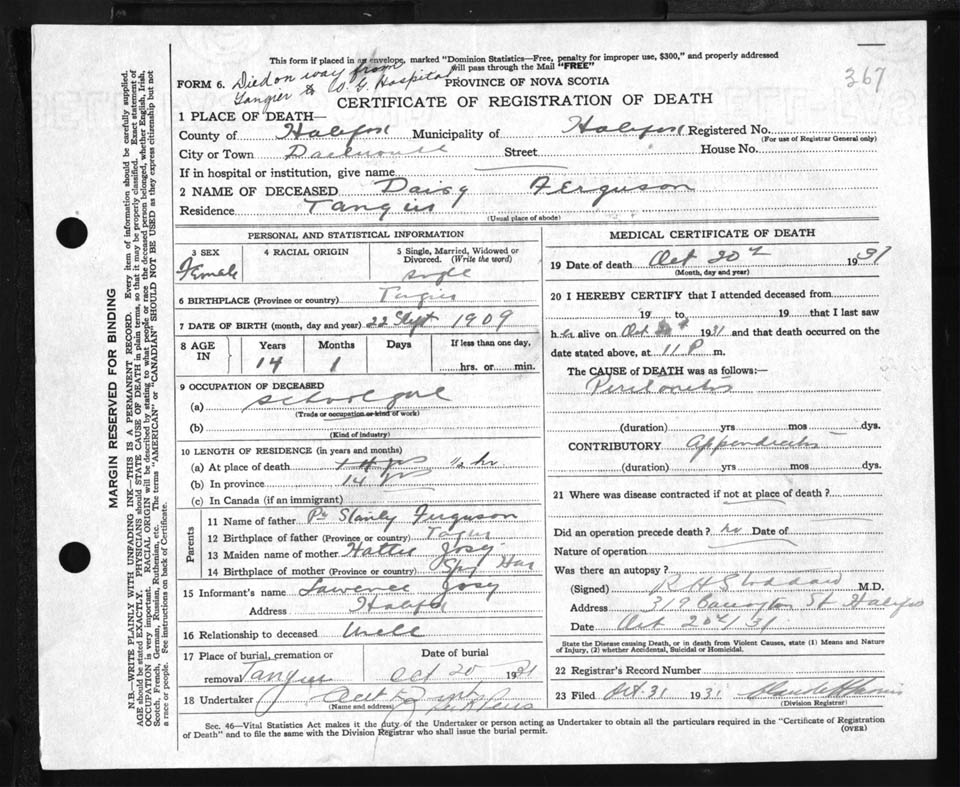 367
This form if placed in an envelope, marked "Dominion Statistics—Free, penalty for improper use, $300," and properly addressed
will pass through the Mail "FREE"
FORM 6. Died on way from
Tangier to V. G. Hospital
PROVINCE OF NOVA SCOTIA
CERTIFICATE OF REGISTRATION OF DEATH
1 PLACE OF DEATH—
County of Halifax Municipality of Halifax Registered No.
(For use of Registrar General only)
City or Town Dartmouth Street House No.
If in hospital or institution, give name
2 NAME OF DECEASED Daisy Ferguson
Residence Tangier
(Usual place of abode)
PERSONAL AND STATISTICAL INFORMATION
3 SEX 4 RACIAL ORIGIN 5 Single, Married, Widowed or Divorced. (Write the word)
Female single
6 BIRTHPLACE (Province or country) Tangier
7 DATE OF BIRTH (month, day and year) 22 Sept 1909
8 AGE IN Years Months Days If less than one day,
14 1 hrs. or min.
9 OCCUPATION OF DECEASED
(a) school girl
(Trade or occupation or kind of work)
(b)
(Kind of industry)
10 LENGTH OF RESIDENCE (in years and months)
(a) At place of death ½ hr
(b) In province 14 yr
(c) In Canada (if an immigrant)
Parents
11 Name of father Stanly Ferguson
12 Birthplace of father (Province or country) Tangier
13 Maiden name of mother Hattie Josey
14 Birthplace of mother (Province or country) Spry Har
15 Informant's name Lawrence Josey
Address Halifax
16 Relationship to deceased Uncle
17 Place of burial, cremation or removal Tangier Date of burial Oct 20 1931
18 Undertaker
(Name and address)
MEDICAL CERTIFICATE OF DEATH
19 Date of death Oct 20 1931
(Month, day and year)
20 I HEREBY CERTIFY that I attended deceased from
19 to 19 that I last saw
her alive on Oct 20 1931 and that death occurred on the
date stated above, at 11 P m.
The CAUSE of DEATH was as follows:—
Peritonitis
(duration) yrs mos dys.
CONTRIBUTORY Appendicitis
(duration) yrs mos dys.
21 Where was disease contracted if not at place of death?
Did an operation precede death? no Date of
Nature of operation
Was there an autopsy?
(Signed) R H Stoddard M.D.
Address 319 Barrington St Halifax
Date Oct 20/31
State the Disease causing Death, or in death from Violent Causes, state (1) Means and Nature
of Injury, (2) whether Accidental, Suicidal or Homicidal.
22 Registrar's Record Number
23 Filed Oct. 31 1931
(Division Registrar)
Sec. 46—Vital Statistics Act makes it the duty of the Undertaker or person acting as Undertaker to obtain all the particulars required in the "Certificate of Registration
of Death" and to file the same with the Division Registrar who shall issue the burial permit.
(OVER)
MARGIN RESERVED FOR BINDING
N.B.—WRITE PLAINLY WITH UNFADING INK—THIS IS A PERMANENT RECORD. Every item of information should be carefully supplied.
AGE should be stated EXACTLY. PHYSICIANS should STATE CAUSE OF DEATH in plain terms, so that it may be properly classified. Exact statement of
OCCUPATION is very important. RACIAL ORIGIN will be described by stating to what people or race the deceased person belonged, whether English, Irish,
Scotch, French, German, Russian, Ruthenian, etc. The terms "AMERICAN" or "CANADIAN" SHOULD NOT BE USED as they express citizenship but not
a race or people. See instructions on back of Certificate.